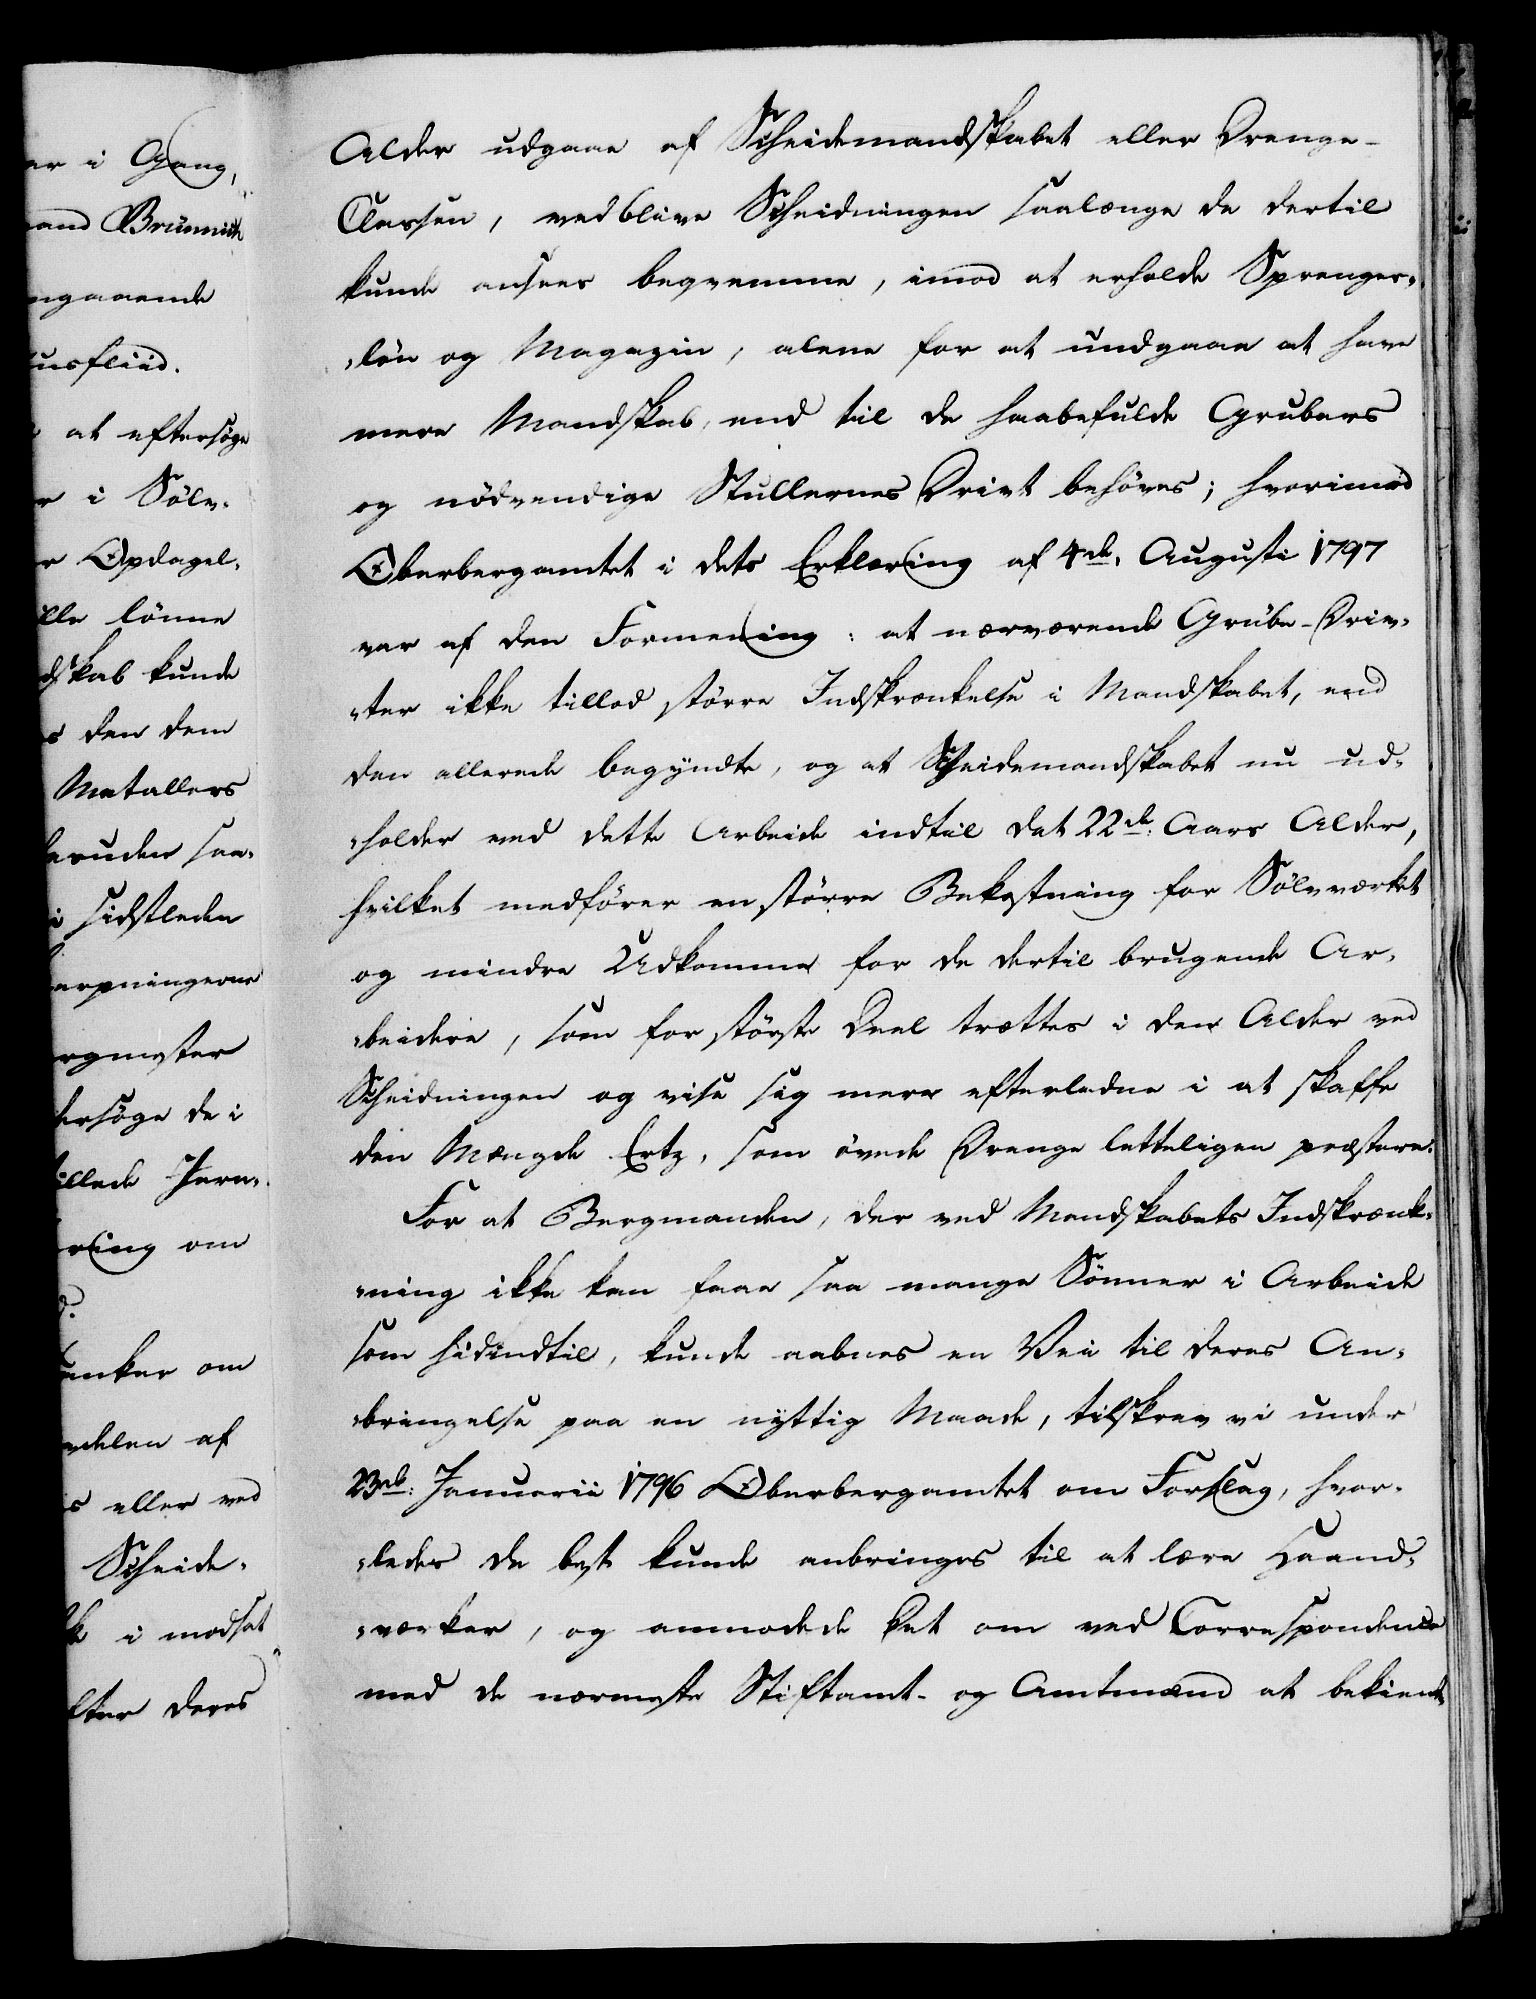 er i Gang,
and Brünnich
ngaaende
usfliid.
at eftersøge
r i Sölv-
r Opdagel-
ille lönne
dskab kunde
s den dem
Metallers
desuden saa-
i sidstleden
ergmester
dersöge de i
tillede Jern-
ring om
d.
anker om
ndelen af
is eller ved
Scheide-
i modsat
fter deres
Alder udgaae af Scheidemandskabet eller Drenge-
Classen, vedblive Scheidningen saalænge de dertil
kunde ansees beqvemme, imod at erholde Sprenger-
-lön og Magazin, alene for at undgaae at have
mere Mandskab, end til de haabefulde Grubers
og nödvendige Stullernes Drivt behöves; hvorimod
Oberbergamtet i dets Erklæring af 4de. Augusti 1797
var af den Formening: at nærværende Grube-Driv-
-ter ikke tillod större Indskrænkelse i Mandskabet, end
den allerede begyndte, og at Scheidemandskabet nu ud-
-holder ved dette Arbeide indtil det 22de: Aars Alder,
hvilket medförer en större Bekostning for Sölvværket
og mindre Udkomme for de dertil brugende Ar-
-beidere, som for störste Deel trættes i den Alder ved
Scheidningen og vise sig mere efterladne i at skaffe
den Mængde Ertz, som övede Drenge letteligen præstere.
For at Bergmanden, der ved Mandskabets Indskrænk-
-ning ikke kan faae saa mange Sönner i Arbeide
som hidindtil, kunde aabnes en Vei til deres An-
-bringelse paa en nyttig Maade, tilskrev vi under
23de: Januarii 1796 Oberbergamtet om Forslag, hvor-
-ledes de best kunde anbringes til at lære Haand-
-værker, og anmodede Det om ved Correspondence
med de nærmeste Stiftamt- og Amtmænd at bekiendt